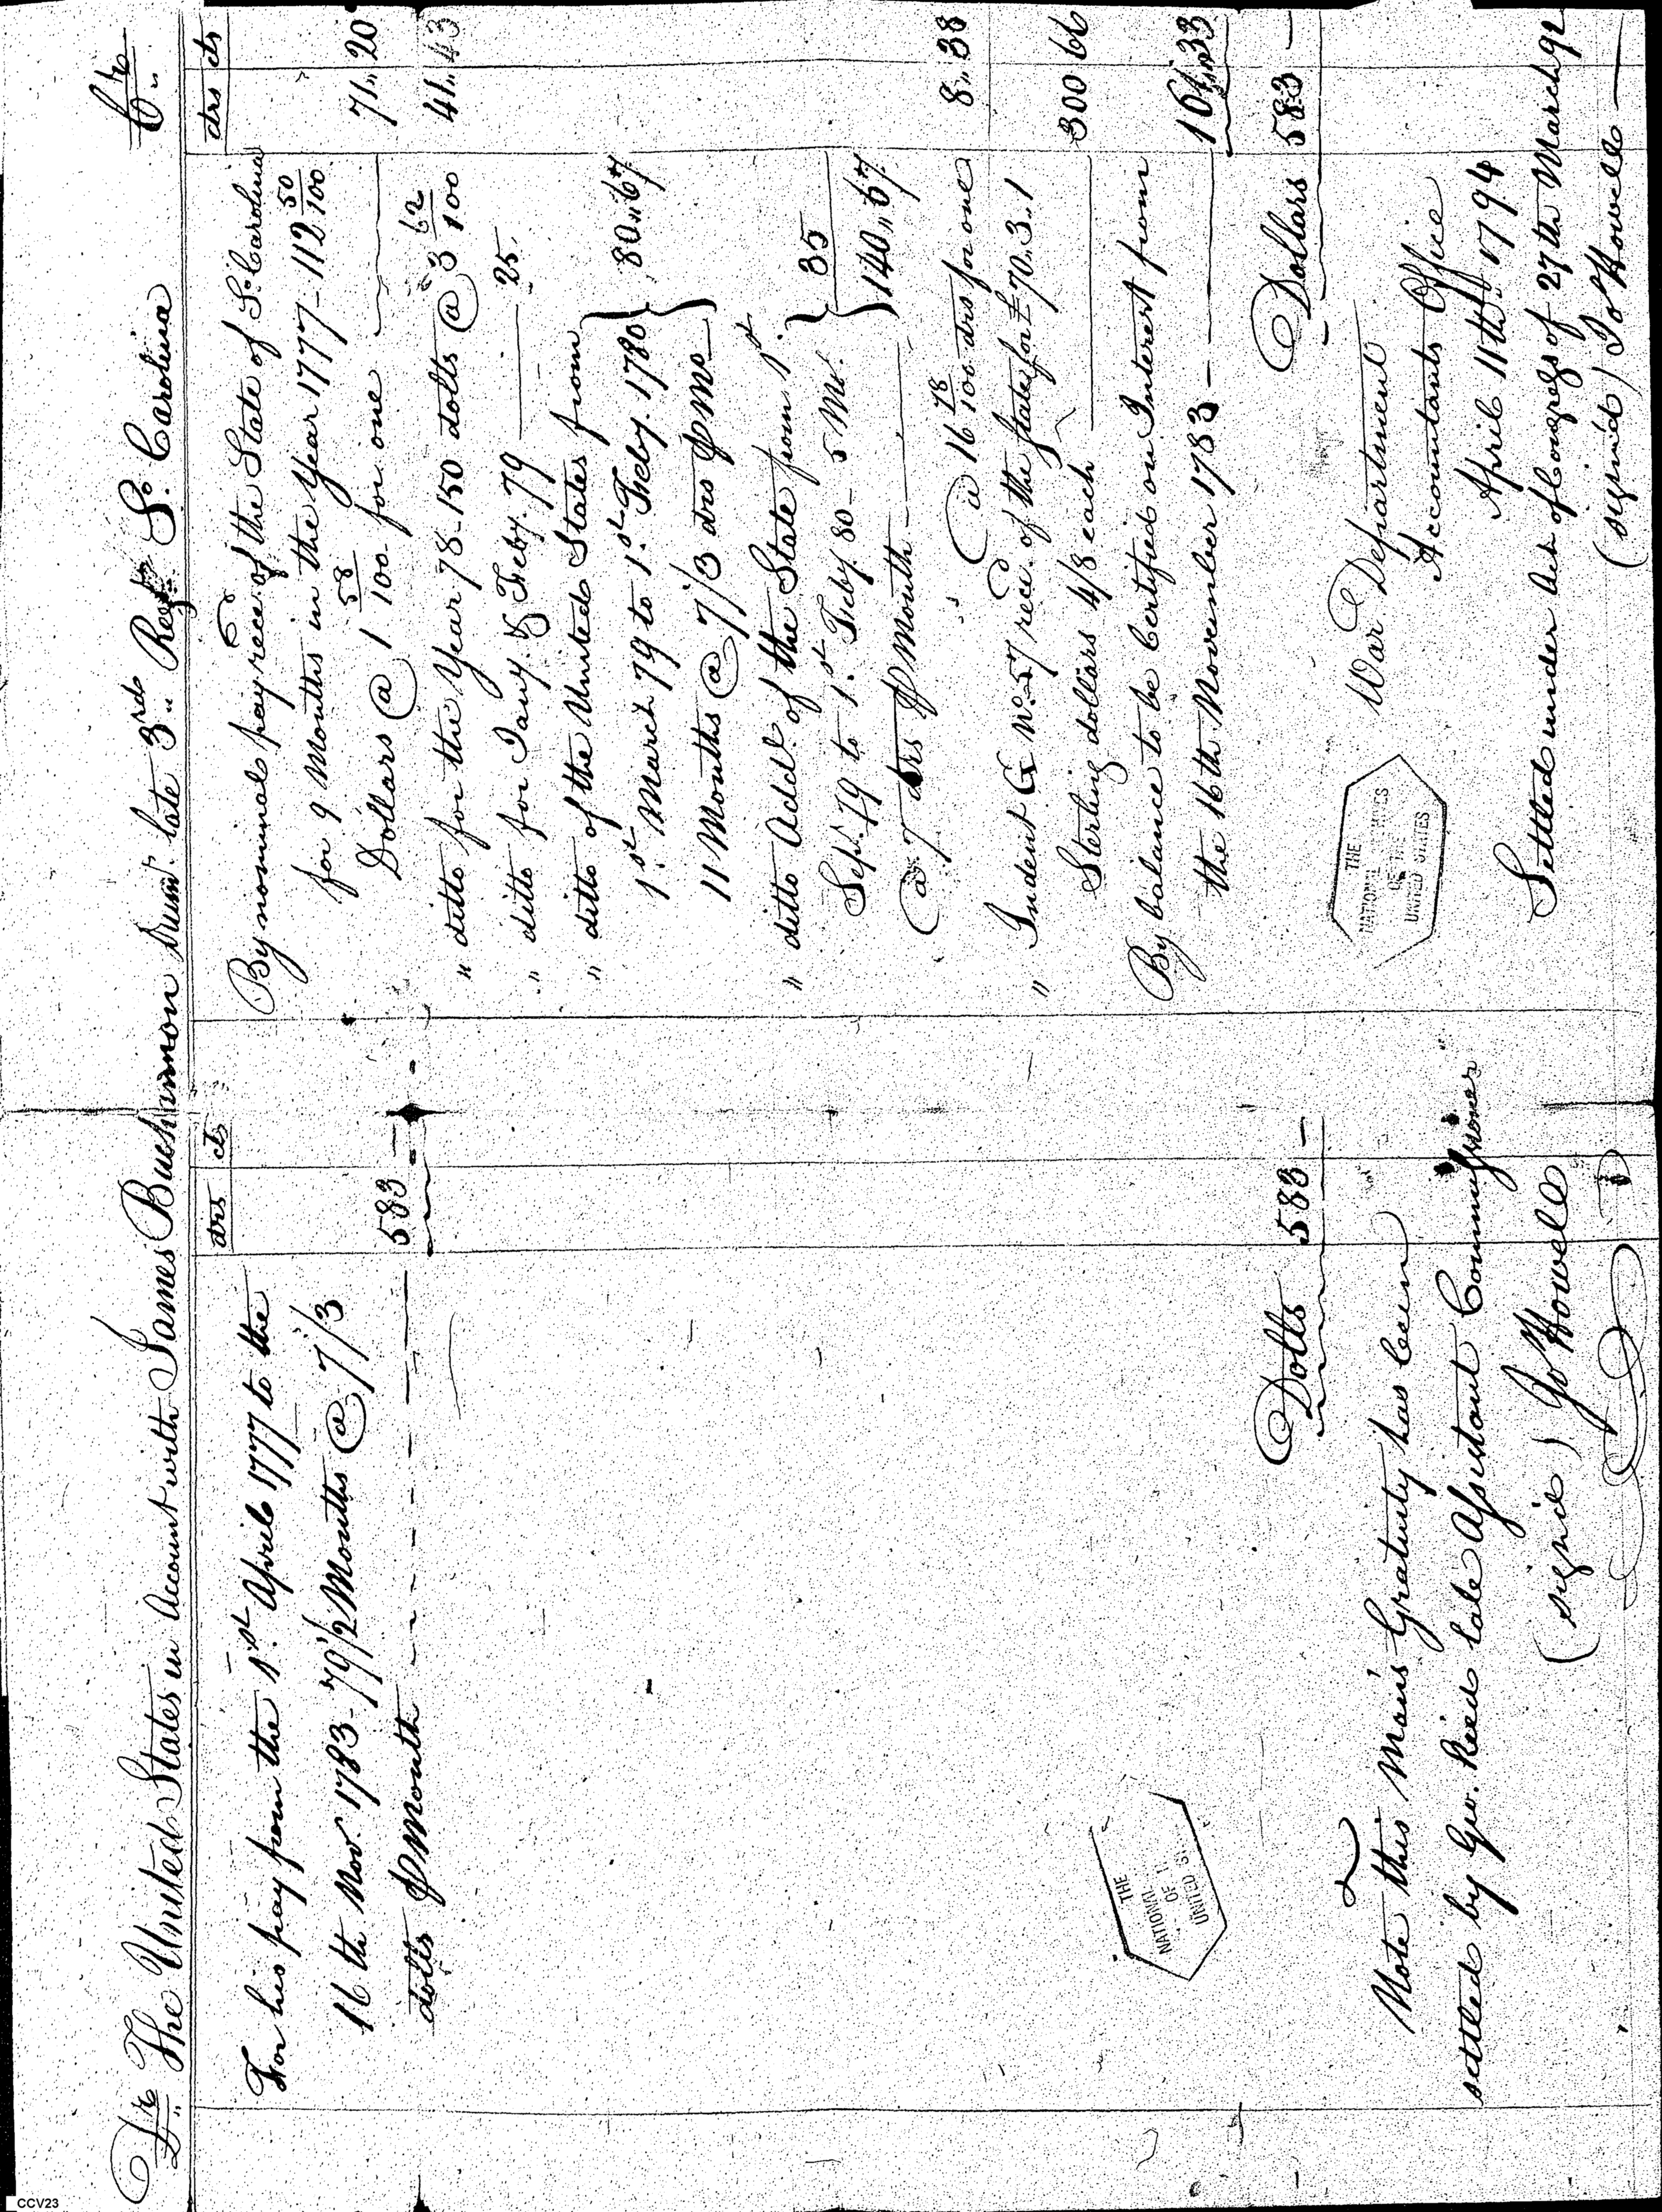 Dr. The United States in Account with James Buchannon Drumr. late 3rd. Regt. So. Carolina Cr.
drs cts
For his pay from the 1st. April 1777 to the
16th Novr. 1783 - 79 1/2 Months @ 7 1/3
dolls pr Month 583 -
Dolls 583 -
Note this Man's Gratuity has been
settled by Geo. Reed late Assistant Commissioner
(signed) Jo Howell
THE
NATIONAL
OF
UNITED
drs cts
By nominal pay rece. of the State of So. Carolina
for 9 Months in the Year 1777 - 112 50/100
Dollars @ 1 58/100 for one 71.. 20
" ditto for the Year 78 - 150 dolls @ 3 62/100 41.. 43
" ditto for Jany. & Feby. 79 25.
" ditto of the United States from
1st. March 79 to 1st. Feby. 1780 } 80..67
11 Months @ 7 1/3 drs pr Mo
" ditto Addl. of the State from 1st.
Sept. 79 to 1st. Feby. 80 - 5 Mo. } 35
@ 7 drs pr Month 140..67
@ 16 78/100 drs for one 8.. 38
" Indent G No. 57 rece. of the State for £70.3.1
Sterling dollars 4/8 each 300 66
By balance to be Certified on Interest from
the 16th November 1783 - 161..33
Dollars 583 -
War Department
Accountants Office
April 11th 1794
THE
NATIONAL ARCHIVES
OF THE
UNITED STATES
Settled under Act of Congress of 27th March 92
(signed) Jo Howell
CCV23